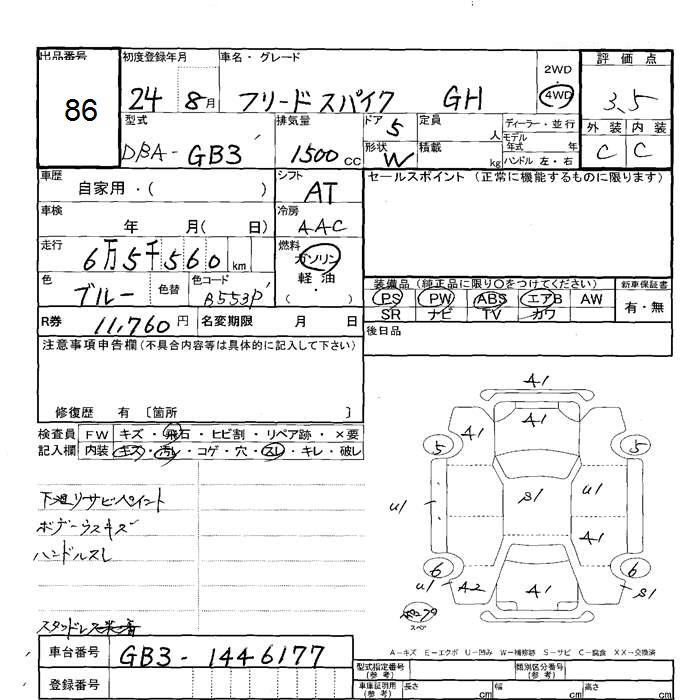 出品番号 初度登録年月 車名・グレード 2WD 評価点
86 24 8月 フリードスパイク GH 4WD 3.5
型式 排気量 ドア 定員 ディーラー・並行 外装 内装
DBA-GB3 1500cc 5 人 モデル年式 年 C C
形状 W 積載 kg ハンドル 左・右
車歴 シフト セールスポイント (正常に機能するものに限ります)
自家用・( ) AT
車検 冷房
年 月( 日) AAC
走行 燃料
6万5千560km ガソリン
色 色コード 軽油
ブルー 色替 B553P ・( )
装備品 (純正品に限り○をつけてください) 新車保証書
PS PW ABS エアB AW 有・無
SR ナビ TV カワ
R券 11,760円 名変期限 月 日 後日品
注意事項申告欄(不具合内容等は具体的に記入して下さい)
修復歴 有 〔箇所 〕
検査員 FW キズ・飛石・ヒビ割・リペア跡・×要
記入欄 内装 キズ・汚レ・コゲ・穴・スレ・キレ・破レ
下廻リサビペイント
ボデーウスキズ
ハンドルスレ
スタッドレス装着
A1
A1 A1
5 5
U1 S1 U1
A1
6 6
U1 A2 A1 S1
スペア
A-キズ E-エクボ U-凹み W-補修跡 S-サビ C-腐食 XX-交換済
車台番号 GB3-1446177
型式指定番号(参考) 類別区分番号(参考)
登録番号
車庫証明用(参考) 長さ cm 幅 cm 高さ cm